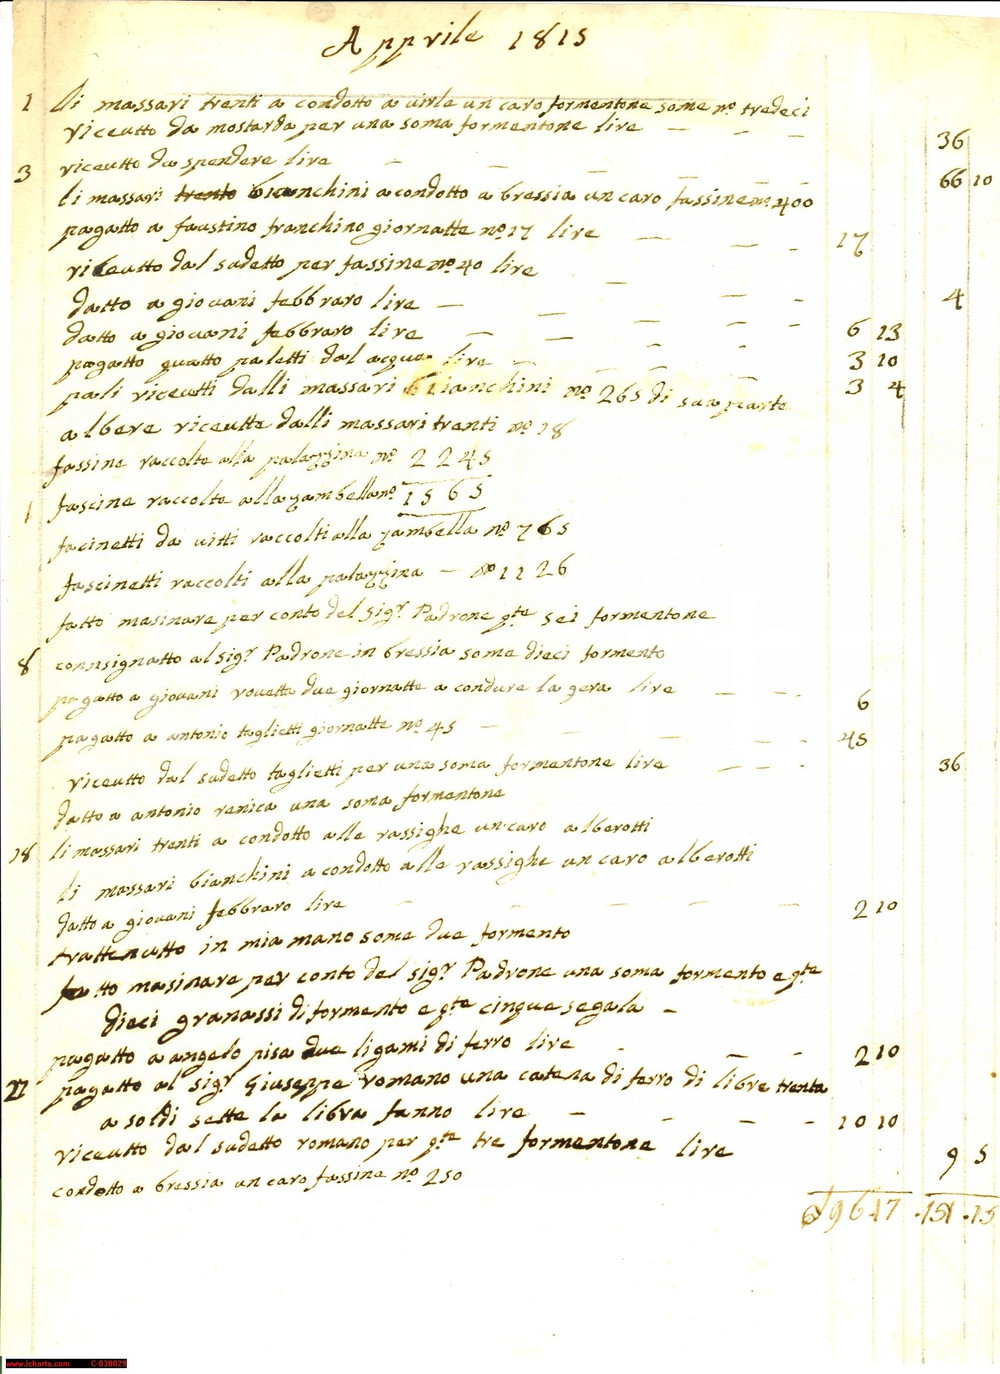 Apprile 1815
1 li massari trenti a condotto a virle un caro formentone some nº tredeci
riceutto da mostarda per una soma formentone lire — — — 36
3 riceutto da spendere lire — — — — 66 10
li massari trento bianchini a condotto a bressia un caro fassine nº 400
pagatto a faustino franchino giornatte nº 17 lire — — - 17
riceutto dal sudetto per fassine nº 40 lire — — - 4
datto a giovani febbraro lire — — — — - 6 13
datto a giovani febbraro lire — — - - 3 10
pagatto quatto paletti dal acqua lire — — — — 3 4
pali riceutti dalli massari bianchini nº 265 di sua parte
albere riceutte dalli massari trenti nº 18
fassine raccolte alla palazzina nº 2245
1 fascine raccolte alla zambella nº 1565
facinetti da vitti raccolti alla zambella nº 765
fascinetti raccolti alla palazzina — nº 1126
fatto masinare per conto del sigr Padrone qte sei formentone
8 connsignatto al sigr Padrone in bressia some dieci formento
pagatto a giovani rovetta due giornatte a condure la gera lire — - - 6
pagatto a antonio taglietti giornatte nº 45 — — — — - 45
riceutto dal sudetto taglietti per una soma formentone lire — - - 36
datto a antonio renica una soma formentone
18 li massari trenti a condotto alle rassighe un caro alberotti
li massari bianchini a condotto alle rassighe un caro alberotti
datto a giovani febbraro lire — — — — — 2 10
trattenutto in mia mano some due formento
fatto masinare per conto del sigr Padrone una soma formento e qte
dieci granassi di formento e qte cinque segala -
pagatto a angelo pisa due ligami di ferro lire - — - 2 10
27 pagatto al sigr Giuseppe romano una catena di ferro di libre trenta
a soldi sette la libra fanno lire — - — - 10 10
riceutto dal sudetto romano per qte tre formentone lire 9 5
condotto a bressia un caro fassine nº 250
96.17 .151.15
www.icharta.com C-030029